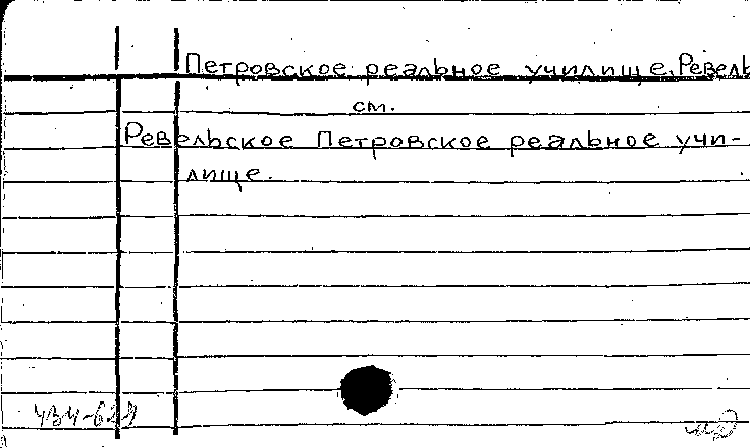 Петровское реальное училище, Ревель
см.
Ревельское Петровское реальное учи-
лище.